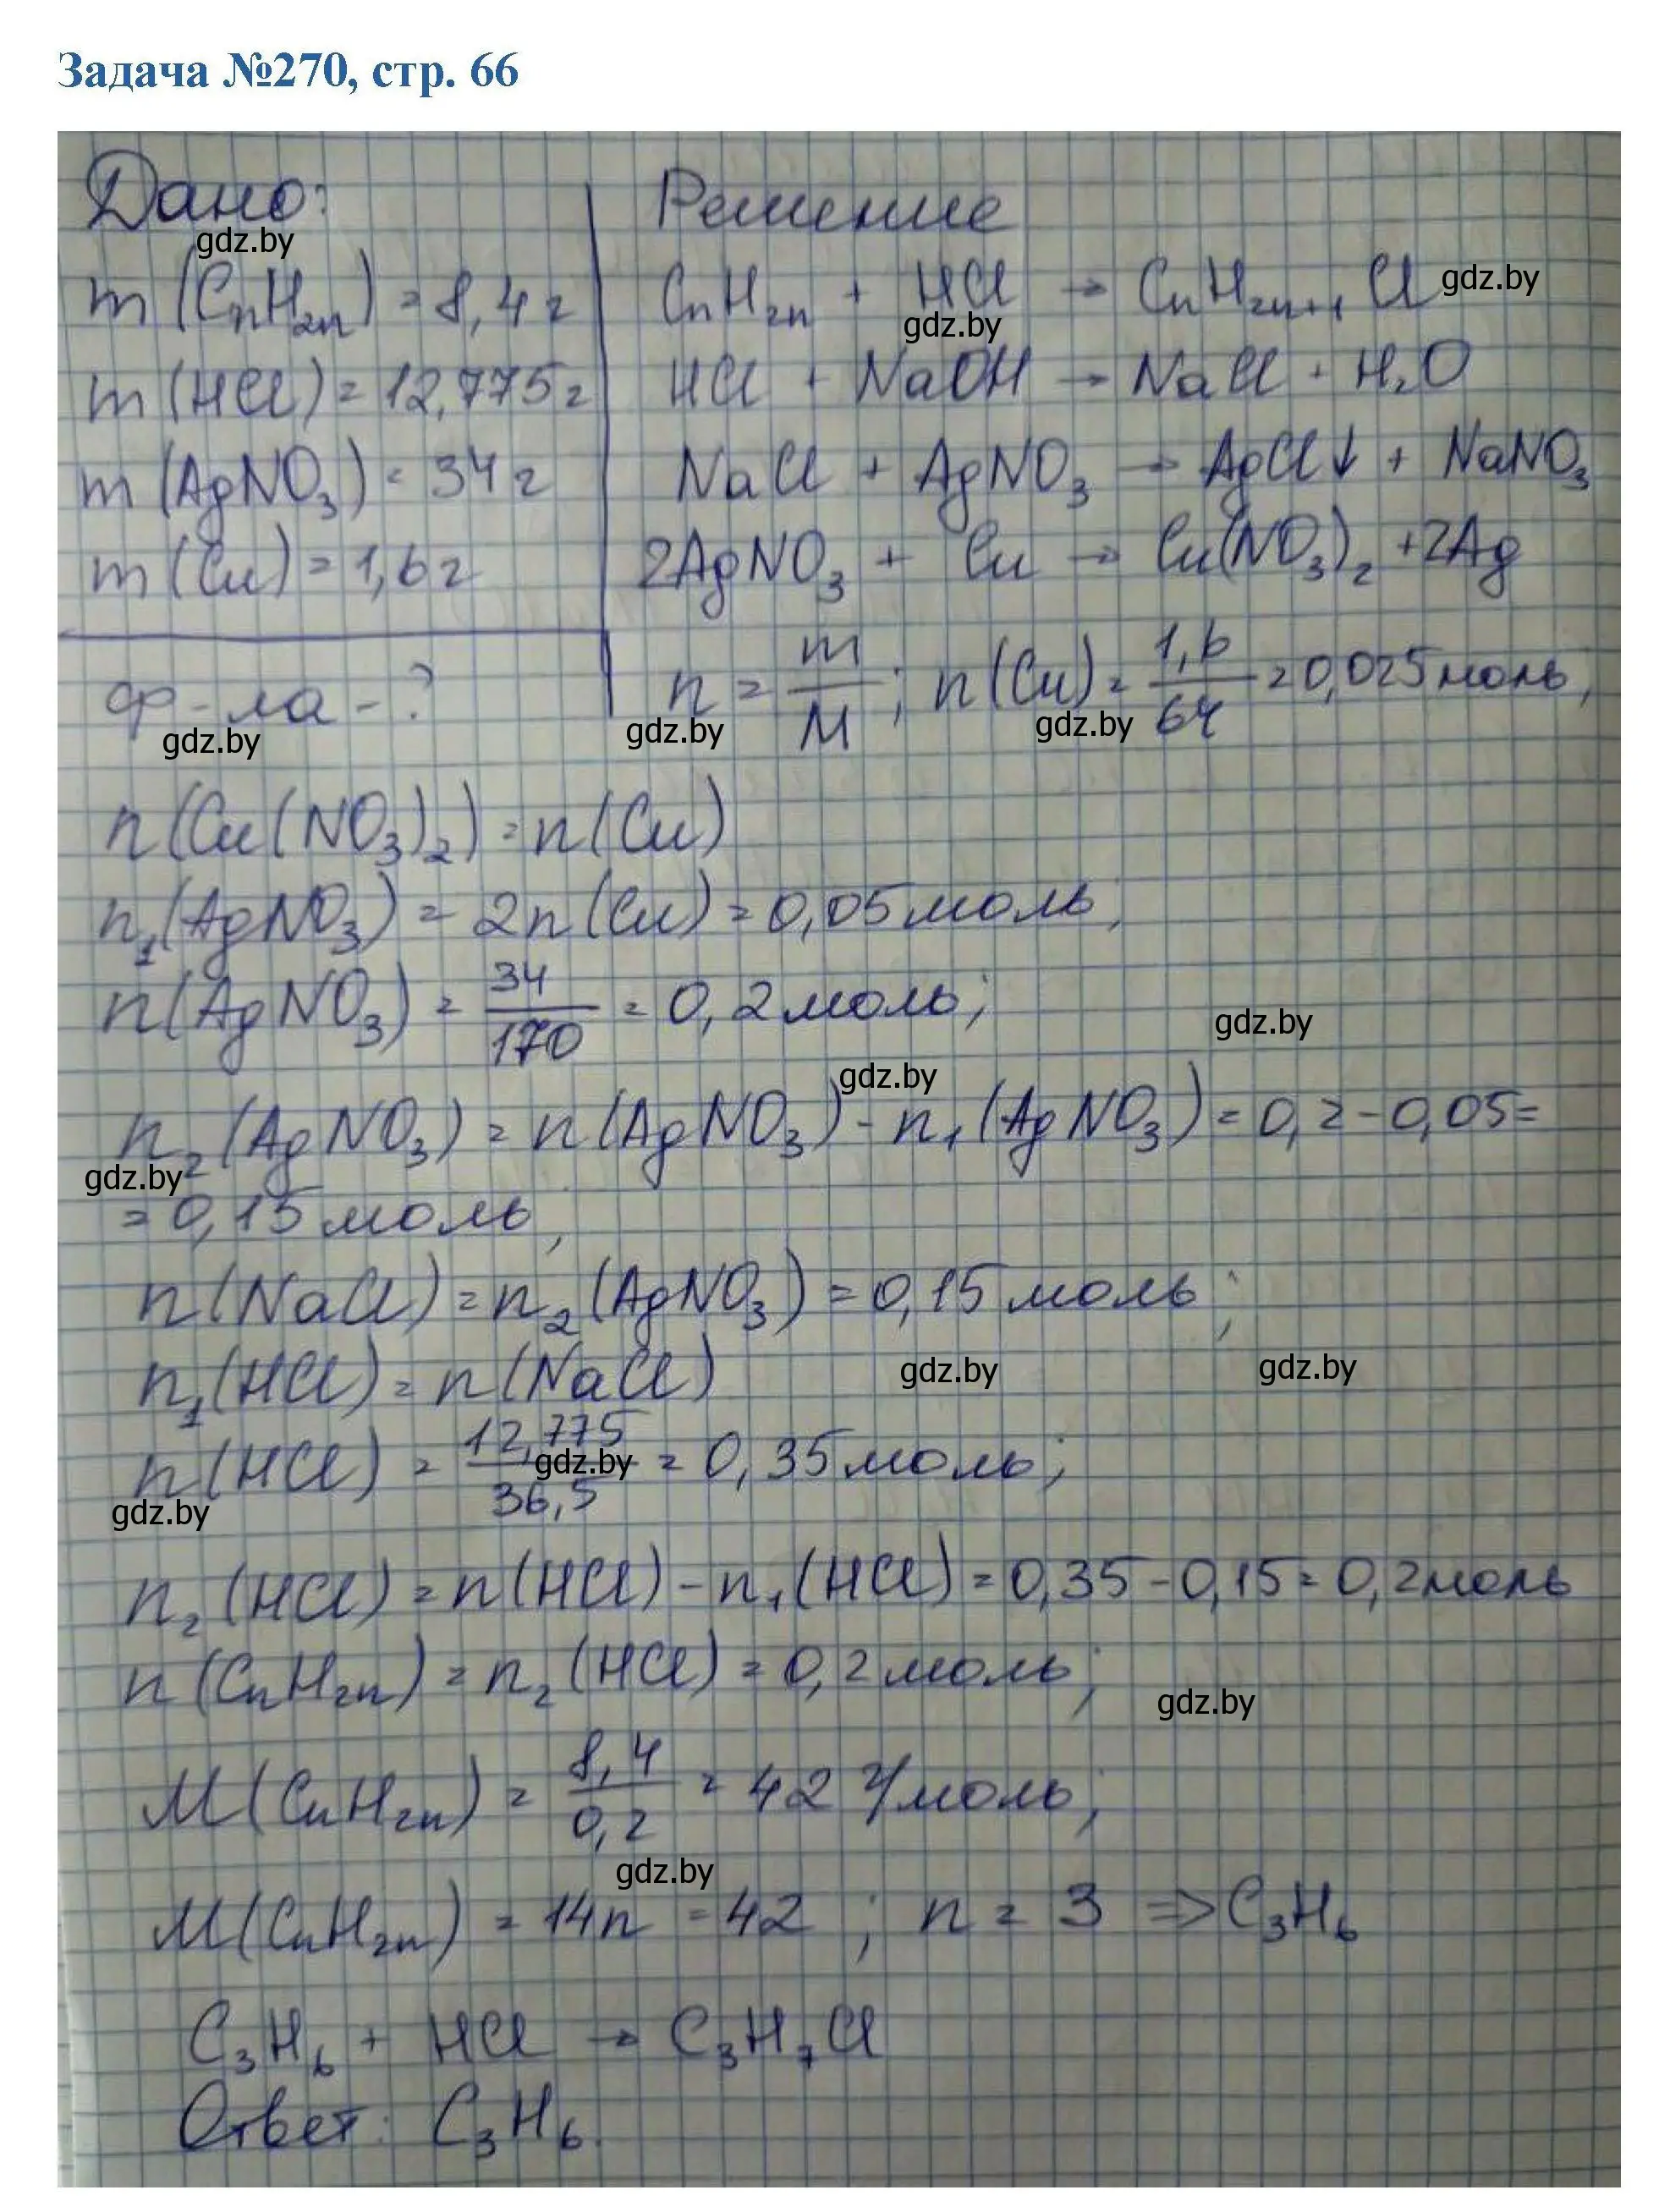 Задача №270, стр. 66
Дано:
gdz.by
m (CnH2n) = 8,4 г
m (HCl) = 12,775 г
m (AgNO3) = 34 г
m (Cu) = 1,6 г
ф-ла - ?
gdz.by
Решение
CnH2n + HCl → CnH2n+1 Cl
gdz.by
gdz.by
HCl + NaOH → NaCl + H2O
NaCl + AgNO3 → AgCl↓ + NaNO3
2AgNO3 + Cu → Cu(NO3)2 + 2Ag
n = m/M ; n (Cu) = 1,6/64 = 0,025 моль,
gdz.by
gdz.by
n (Cu (NO3)2) = n (Cu)
n1 (AgNO3) = 2n (Cu) = 0,05 моль;
n (AgNO3) = 34/170 = 0,2 моль;
gdz.by
gdz.by
n2 (AgNO3) = n (AgNO3) - n1 (AgNO3) = 0,2 - 0,05 =
gdz.by
= 0,15 моль,
n (NaCl) = n2 (AgNO3) = 0,15 моль;
n1 (HCl) = n (NaCl)
gdz.by
gdz.by
n (HCl) = 12,775/36,5 = 0,35 моль;
gdz.by
gdz.by
n2 (HCl) = n (HCl) - n1 (HCl) = 0,35 - 0,15 = 0,2 моль
n (CnH2n) = n2 (HCl) = 0,2 моль;
gdz.by
M (CnH2n) = 8,4/0,2 = 42 г/моль;
gdz.by
M (CnH2n) = 14n = 42 ; n = 3 => C3H6
C3H6 + HCl → C3H7Cl
Ответ: C3H6.